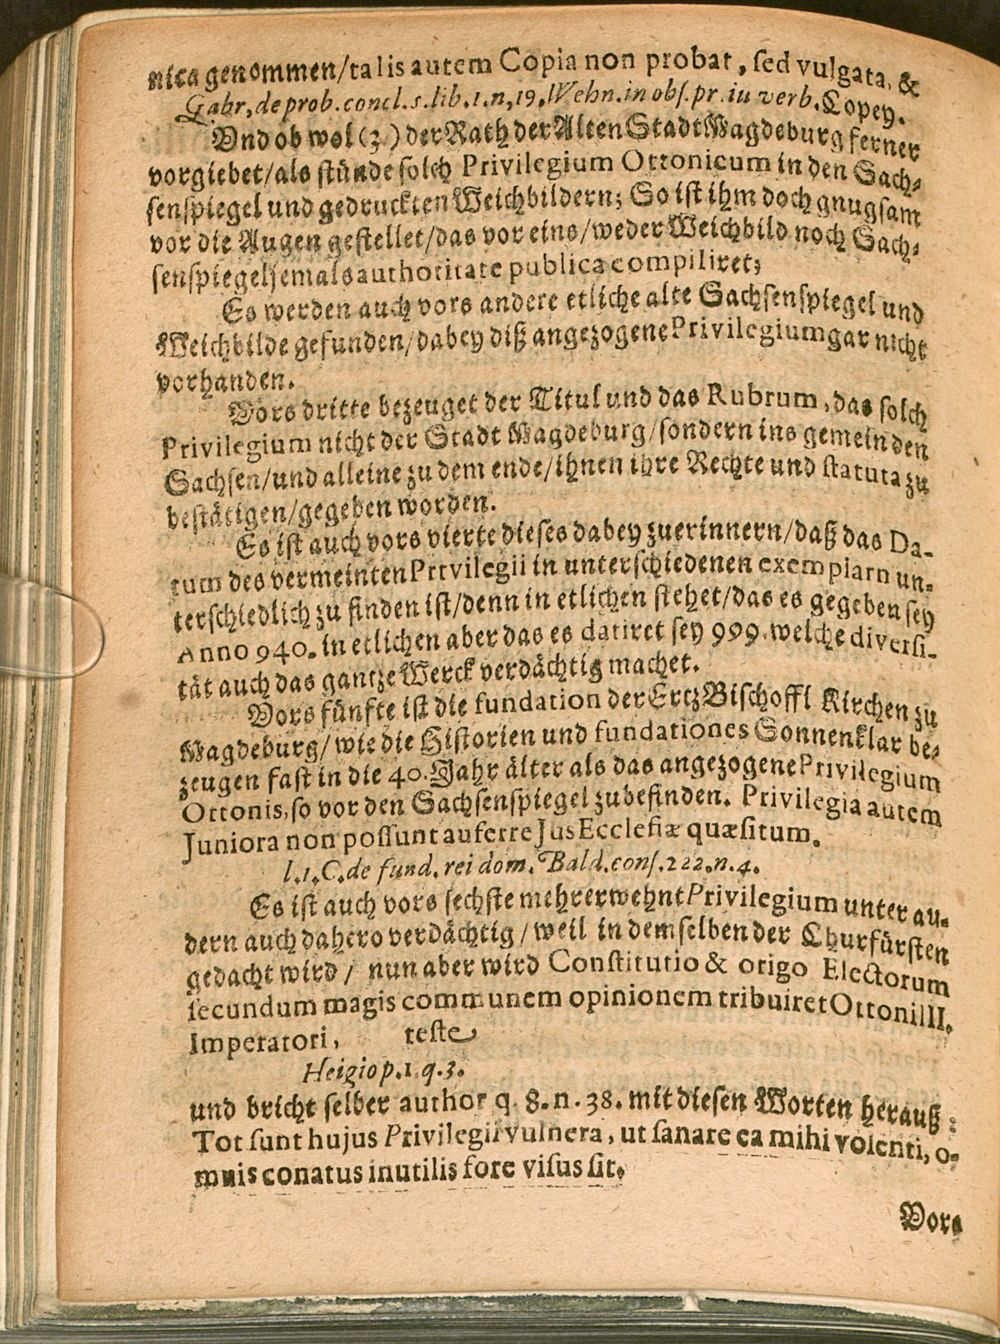 nica genommen/talis autem Copia non probat, sed vulgata, &
Gabr, de prob. concl. s. lib. 1. n, 19, Wehn. in obs. pr. iu verb. Copey.
Vnd ob wol (3) der Rath der Alten Stadt Magdeburg ferner
vorgiebet/als stünde solch Privilegium Ottonicum in den Sach-
senspiegel und gedruckten Weichbildern; So ist ihm doch gnugsam
vor die Augen gestellet/das vor eins/weder Weichbild noch Sach-
senspiegel jemals authoritate publica compiliret;
Es werden auch vors andere etliche alte Sachsenspiegel und
Weichbilde gefunden/dabey diß angezogene Privilegium gar nicht
vorhanden.
Vors dritte bezeuget der Titul und das Rubrum, das solch
Privilegium nicht der Stadt Magdeburg/sondern ins gemein den
Sachsen/und alleine zu dem ende/ihnen ihre Rechte und statuta zu
bestätigen/gegeben worden.
Es ist auch vors vierte dieses dabey zuerinnern/daß das Da-
tum des vermeinten Prtvilegii in unterschiedenen exemplarn un-
terschiedlich zu finden ist/denn in etlichen stehet/das es gegeben sey
Anno 940. in etlichen aber das es datiret sey 999. welche diversi-
tät auch das gantze Werck verdächtig machet.
Vors fünfte ist die fundation der Ertz Bischoffl Kirchen zu
Magdeburg/wie die Historien und fundationes Sonnenklar be-
zeugen fast in die 40. Jahr älter als das angezogene Privilegium
Ottonis, so vor den Sachsenspiegel zubefinden. Privilegia autem
Juniora non possunt auferre Jus Ecclesiæ quæsitum.
l. 1. C. de fund. rei dom. Bald. cons. 222. n. 4.
Es ist auch vors sechste mehrerwehnt Privilegium unter au-
dern auch dahero verdächtig/weil in demselben der Churfürsten
gedacht wird/ nun aber wird Constitutio & origo Electorum
secundum magis communem opinionem tribuiret Ottoni III.
Imperatori, teste
Heigio p. 1. q. 3.
und bricht selber author q. 8. n. 38. mit diesen Worten herauß:
Tot sunt hujus Privilegii vulnera, ut sanare ea mihi volenti, o-
mnis conatus inutilis fore visus sit.
Vors